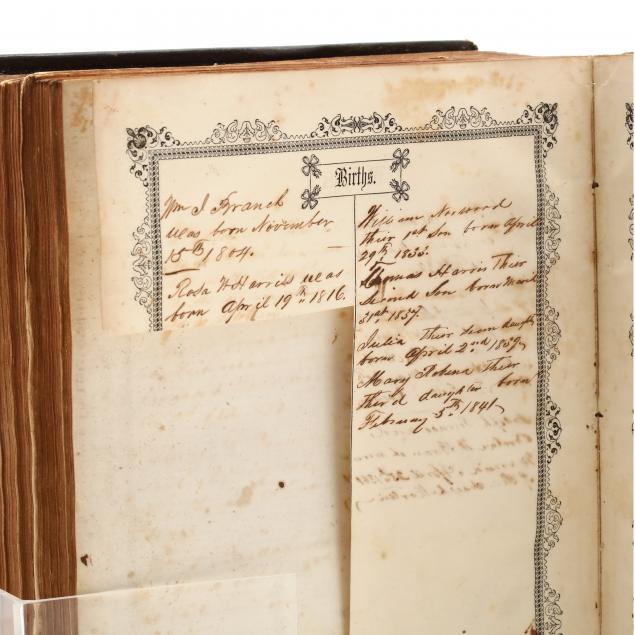 Births.
Wm J Branch
was born November
15th 1804.
Rosa W Harris was
born April 19th 1816.
William Norwood
their 1st son born April
29th 1835.
Thomas Harris Their
second Son born March
31st 1837.
Julia their daughter
born April 2nd 1839
Mary Robena Their
third daughter born
February 5th 1841